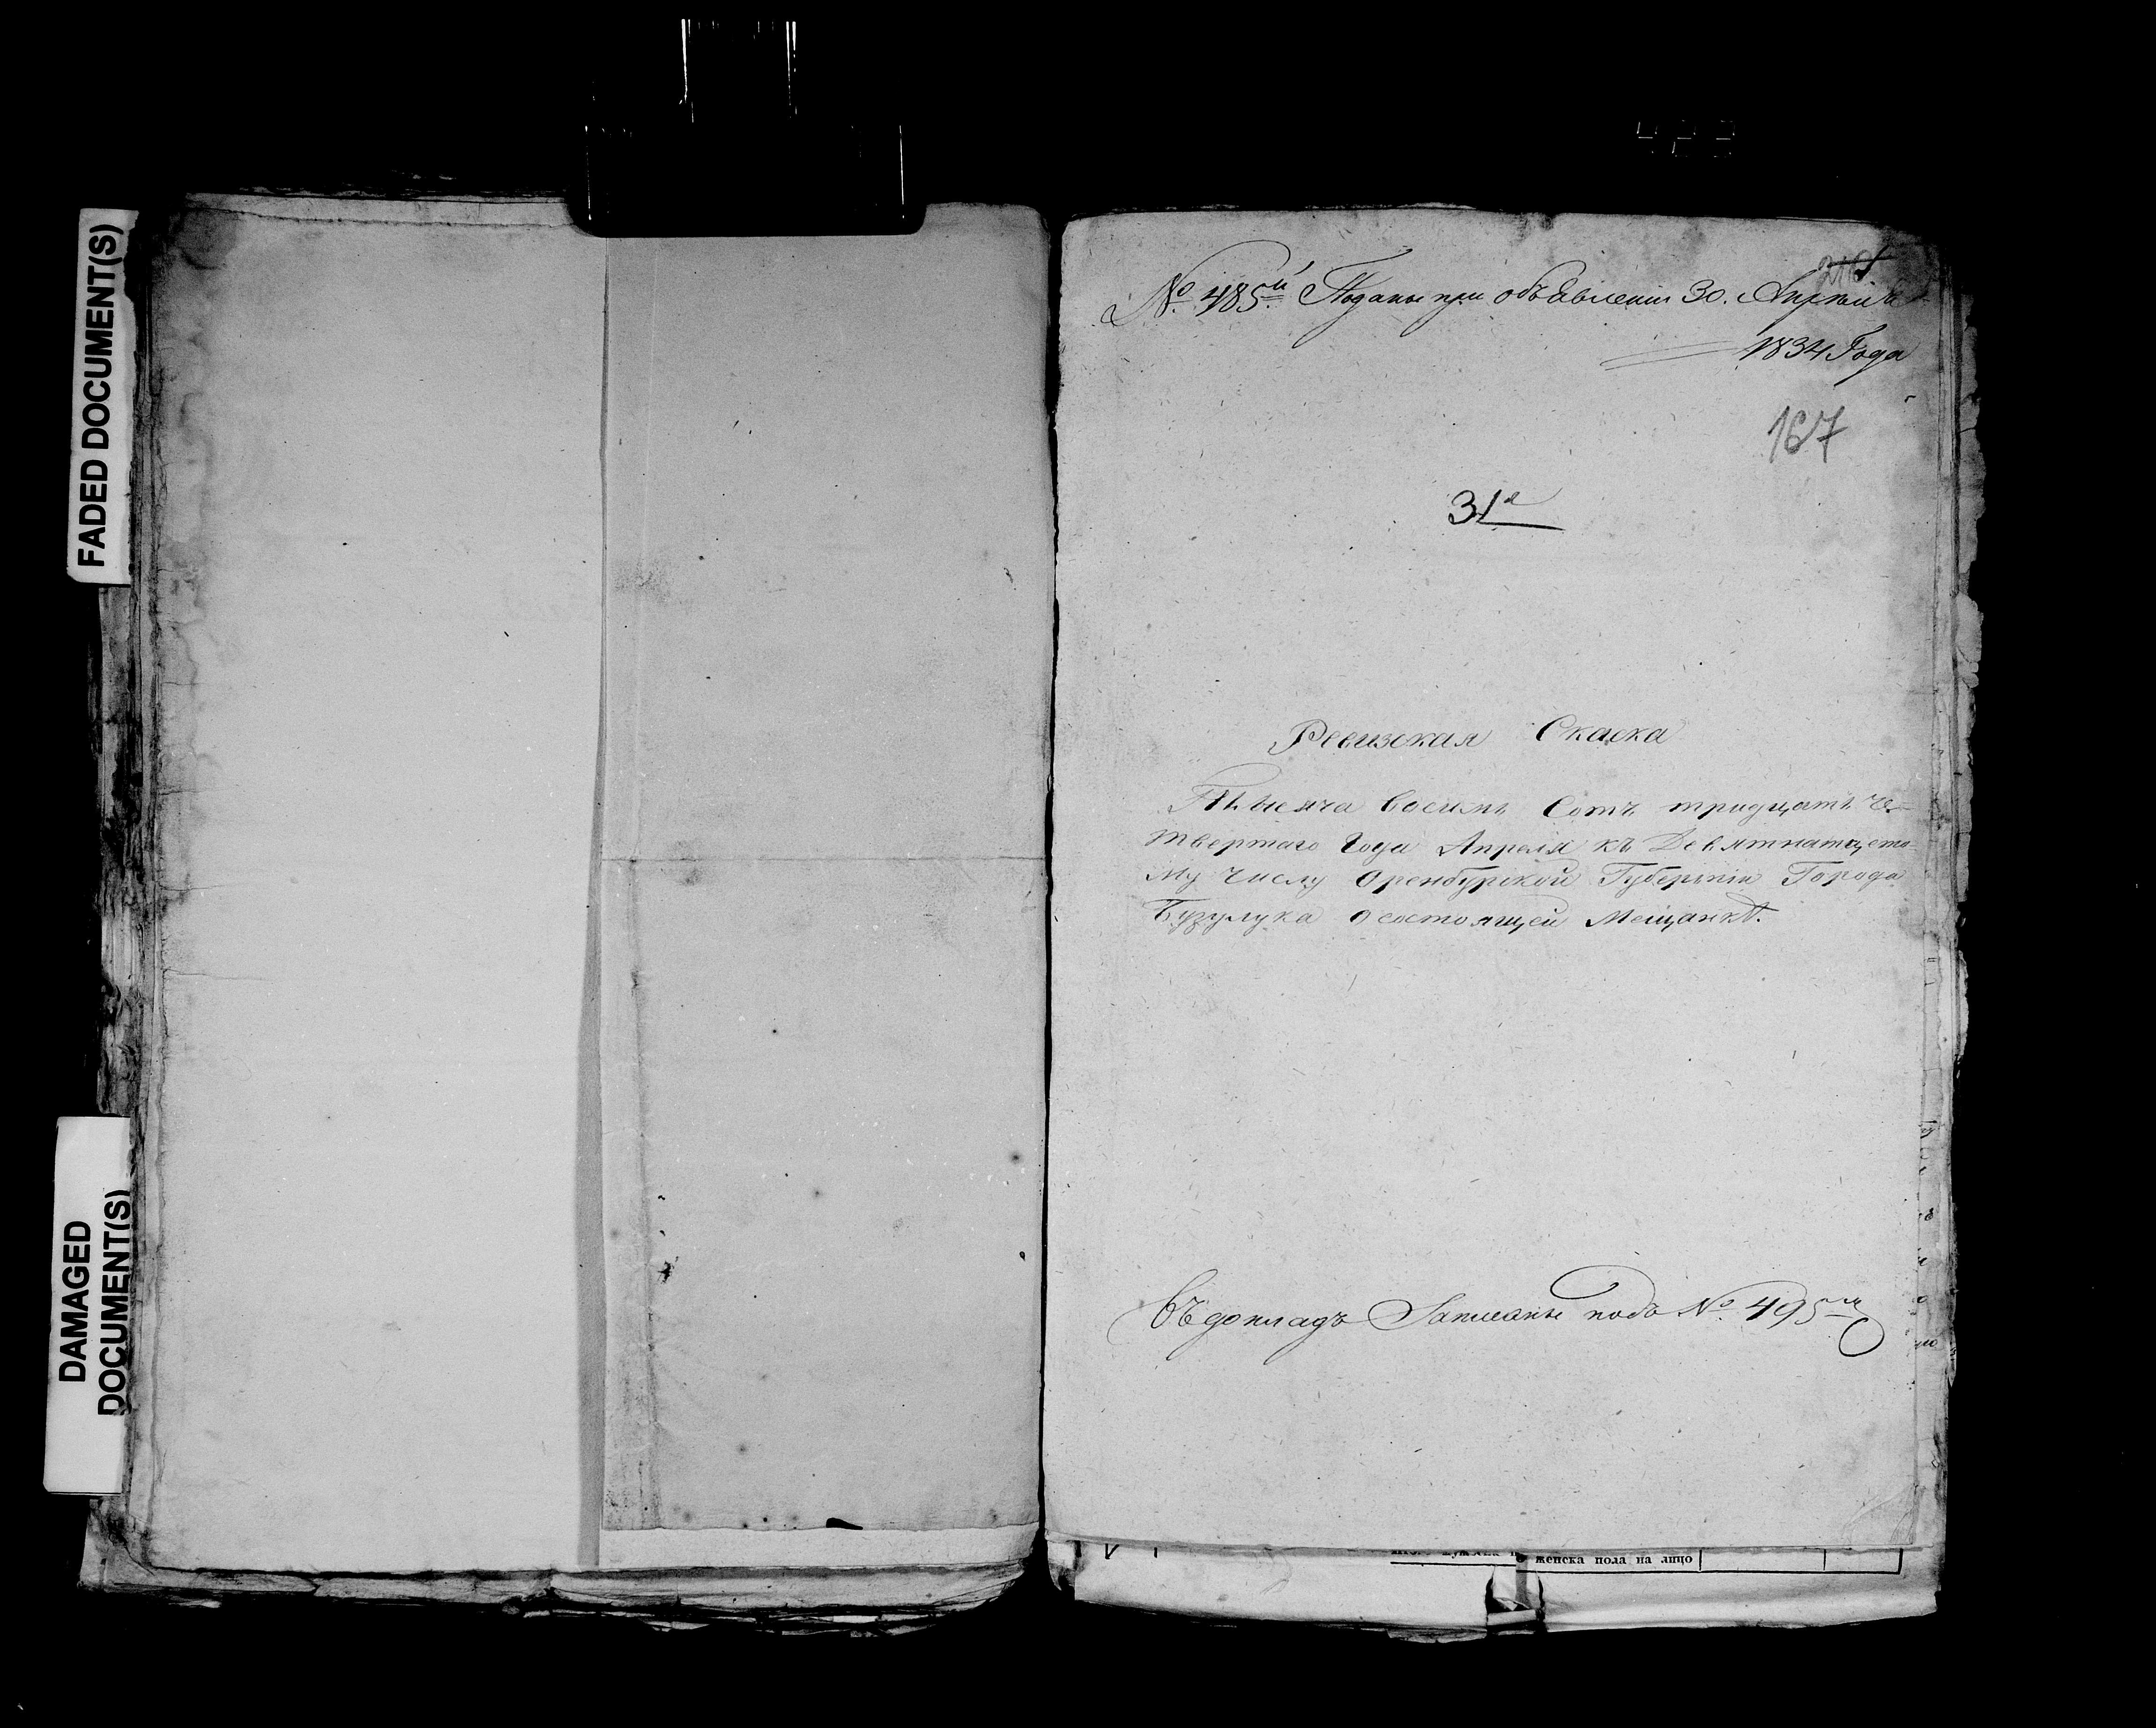 FADED DOCUMENT(S)
DAMAGED
DOCUMENT(S)
423
№ 485й Поданы при объявлении 30. Апреля
1834 Года
167
31я
Ревизская Скаска
Тысяча восимь Сотъ тридцать че-
твертаго Года Апреля къ Девятнатцето
му числу Оренбургской Губернiи Города
Бузулука о состоящей Мещанкѣ.
Въ докладъ Записаны подъ № 495м
женска пола на лицо